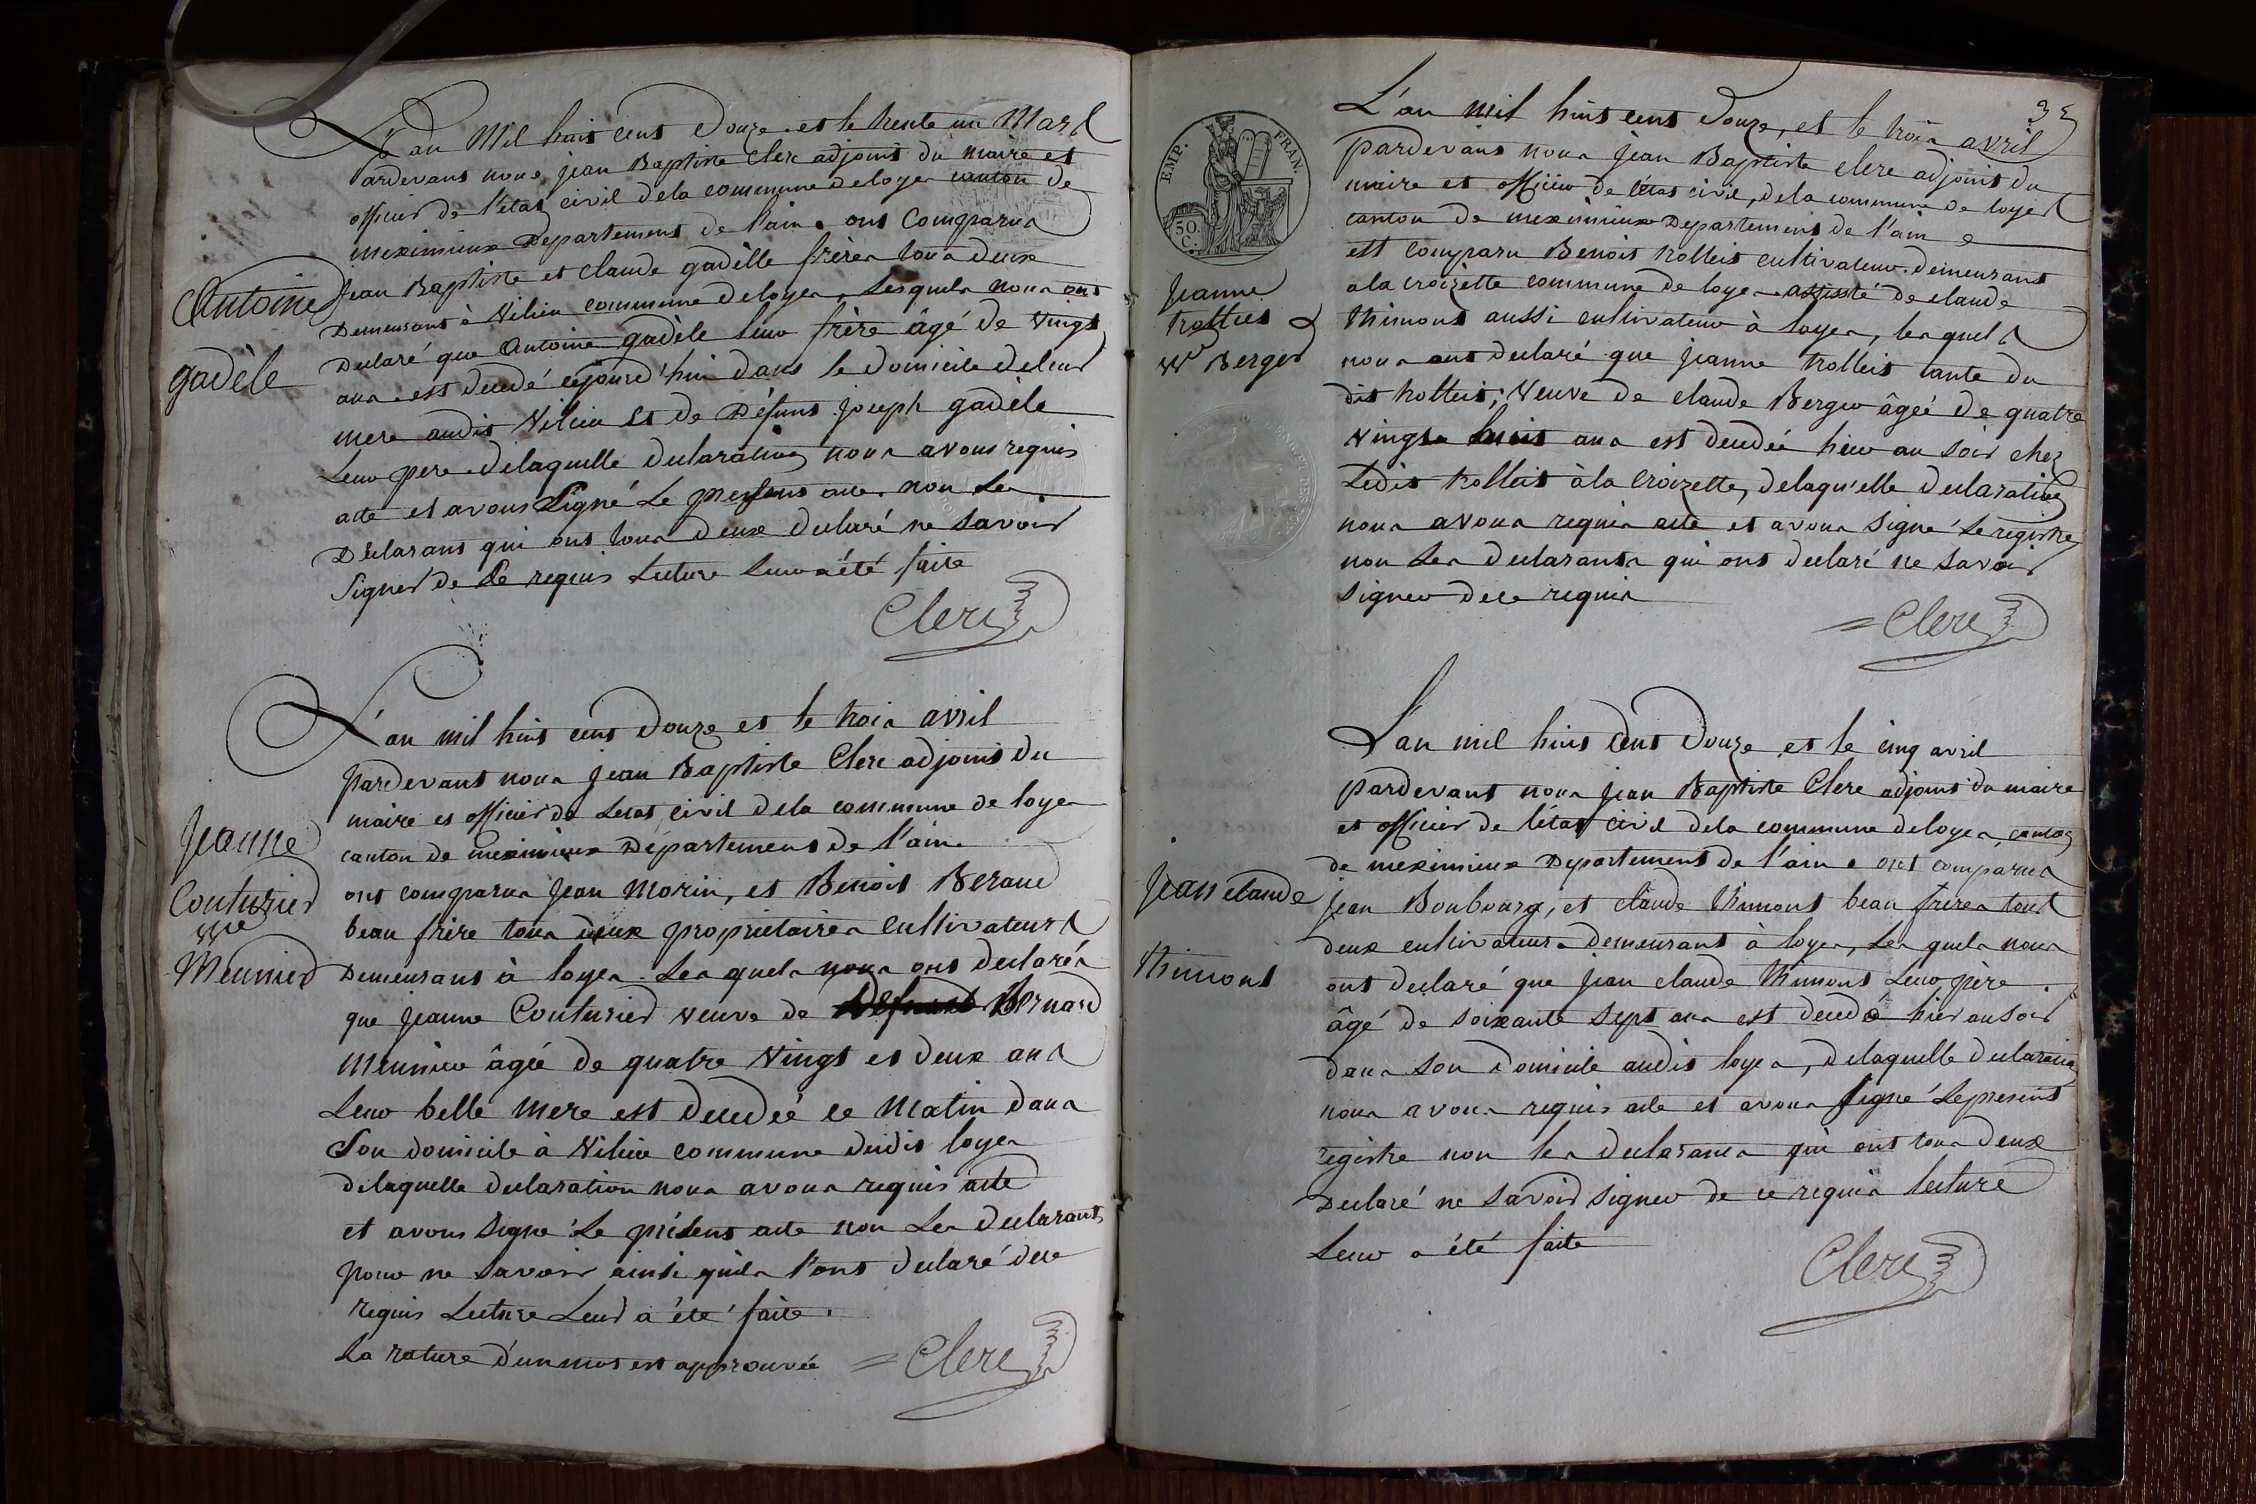 L'an Mil huit cent Douze et le trente un Mars
Pardevant nous jean Baptiste Clerc adjoint du maire et
officier de l'état civil dela commune deloyes canton de
meximieux Département de l'ain. ont Comparus
jean Baptiste et claude gadèlle frères tous deux
Demeurant à Vilieu commune deloyes, Lesquels nous ont
Declaré que Antoine gadèle leur frère âgé de vingt
ans est decedé cejourd'hui dans le domicile deleur
mere audit Vilieu et de Défunt joseph gadèle
Leur pere. delaquelle declaration nous avons requis
acte et avons Signé Le present acte. non Les
Déclarans qui ont tous deux declaré ne savoir
Signer de Ce requis Lecture Leur a été faite
Clerc
Antoine
gadèle
L'an mil huit cent Douze et le trois avril
pardevant nous jean Baptiste Clerc adjoint du
maire et officier de Letat civil dela commune de loyes
canton de meximieux Département de l'ain.
ont comparus jean Morin, et Benoit Beraud
beau frère tous deux propriétaires cultivateurs
Demeurant à loyes. Les quels nous ont declarés
que jeanne Couturier veuve de Defunt Bernard
Meunier âgée de quatre Vingt et deux ans
Leur belle mere est decedée ce matin dans
Son domicile à Vilieu commune dudit loyes
delaquelle declaration nous avons requis acte
et avons Signé Le présent acte non Les declarants
pour ne savoir ainsi quils l'ont declaré dece
requis Lecture Leur a été faite.
La rature d'un mot est approuvée = Clerc
Jeanne
Couturier
vve
Meunier
35
L'an mil huit cent Douze, et le trois avril
pardevant nous jean Baptiste clerc adjoint du
maire et officier de l'état civil, dela commune de loyes
canton de meximieux Departement de l'ain
est comparu Benoit trolliet cultivateur. demeurant
a la croizette commune de loyes assisté de claude
thimont aussi cultivateur à loyes, lesquels
nous ont declaré que jeanne trolliet tante du
dit trolliet; Veuve de claude Berger âgée de quatre
vingts huit ans est decedée hier au soir chez
Ledit trolliet à la croizette, delaqu'elle declaration
nous avons requis acte et avons Signé Le registre
non Les declarants qui ont declaré ne savoir
signer dece requis
= Clerc
EMP. FRAN.
50.
C.
Jeanne
trolliet
vve Berger
L'an mil huit Cent Douze et le cinq avril
pardevant nous jean Baptiste Clerc adjoint du maire
et officier de l'état civil dela commune deloyes, canton
de meximieux Departement de l'ain. ont comparus
jean Bonbourg, et claude thimont beau frères tous
deux cultivateurs demeurant à loyes, Les quels nous
ont declaré que jean claude thimont Leur père
âgé de soixante sept ans est decedé hier au soir
dans son domicile audit loyes, delaquelle declaration
nous avons requis acte et avons signé Le present
registre non les declarants qui ont tous deux
Declaré ne savoir signer de ce requis lecture
Leur a été faite
Clerc
Jean claude
thimont